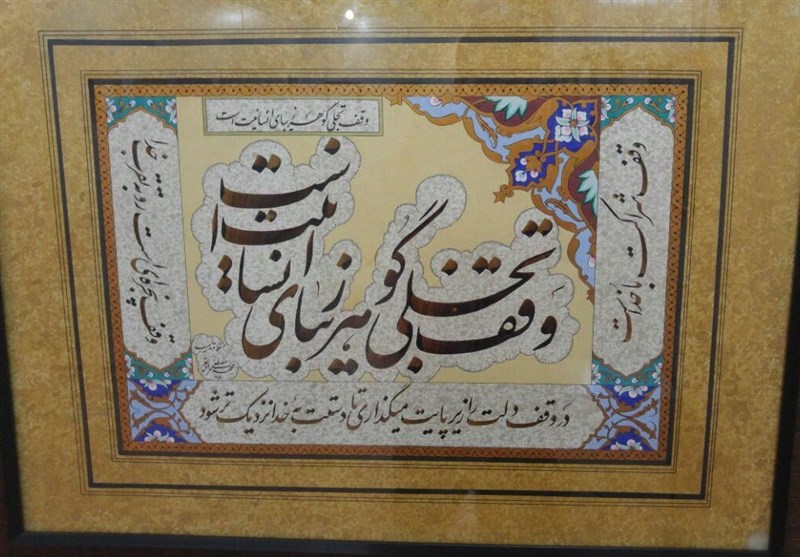 وقف تجلی گوهر زیبای انسانیت است
وقف تجلی گوهر زیبای انسانیت است
وقف شراکت با خداست
وقف پنجره‌ای است رو به قربت خدا
در وقف دلت را زیر پایت میگذاری تا دستت به خدا نزدیک تر شود